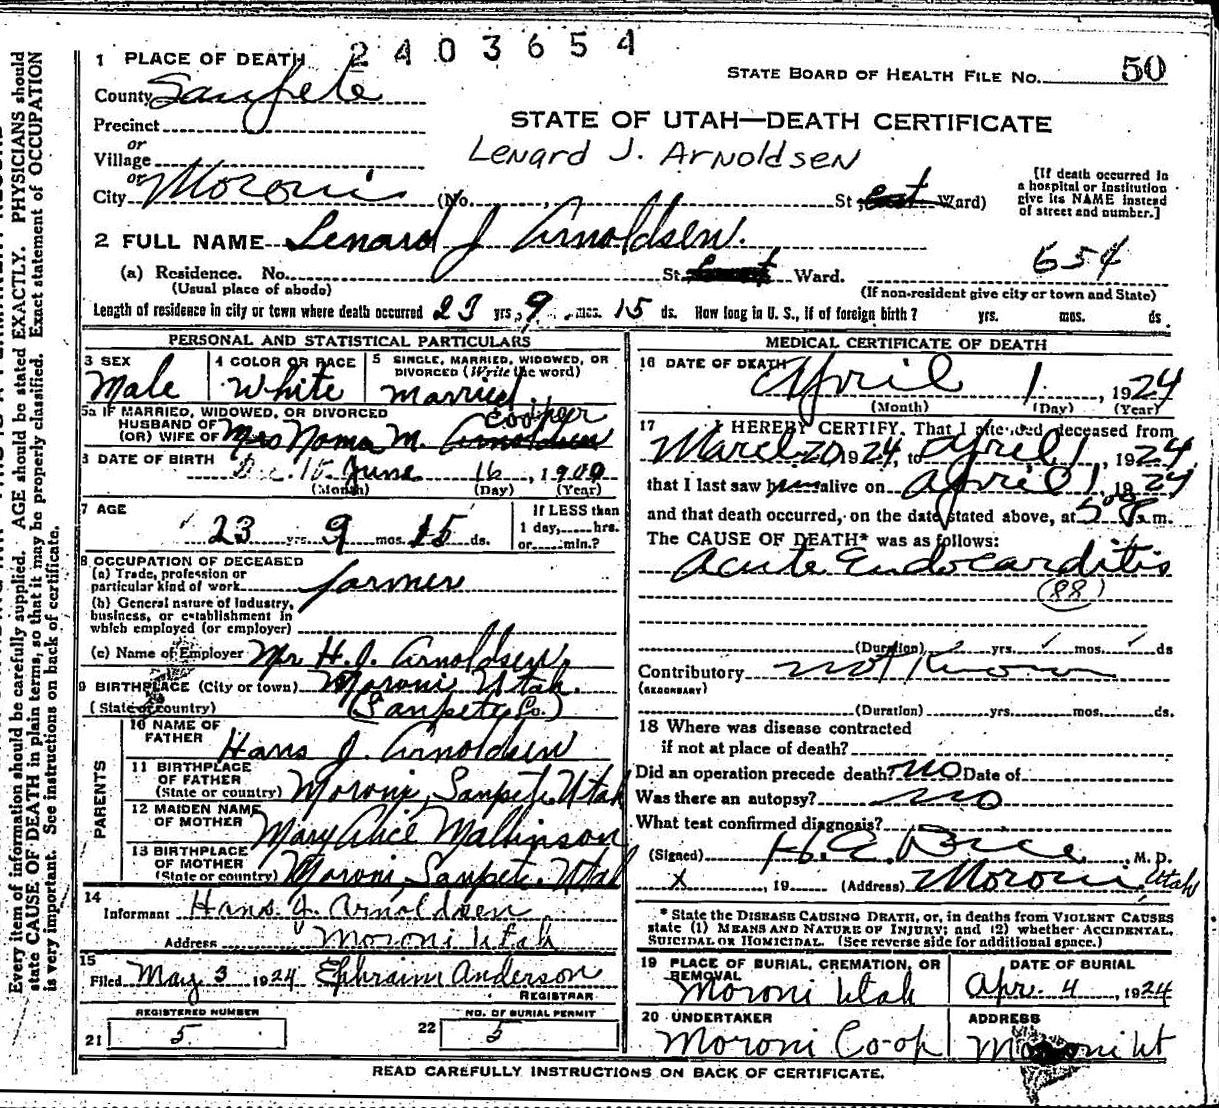 2403654
1 PLACE OF DEATH
STATE BOARD OF HEALTH FILE NO. 50
County Sanpete
Precinct
or
Village
or
City Moroni (No. , St ; Ward)
STATE OF UTAH—DEATH CERTIFICATE
Lenard J. Arnoldsen
[If death occurred in
a hospital or institution
give its NAME instead
of street and number.]
2 FULL NAME Lenard J Arnoldsen.
654
(a) Residence. No. St. Ward.
(Usual place of abode) (If non-resident give city or town and State)
Length of residence in city or town where death occurred 23 yrs. 9 mos. 15 ds. How long in U. S., if of foreign birth? yrs. mos. ds.
PERSONAL AND STATISTICAL PARTICULARS
3 SEX
Male
4 COLOR OR RACE
White
5 SINGLE, MARRIED, WIDOWED, OR
DIVORCED (Write the word)
Married.
5a IF MARRIED, WIDOWED, OR DIVORCED
HUSBAND OF
(OR) WIFE OF Mrs Norma M. Arnoldsen
Cooper
DATE OF BIRTH June 16, 1900
(Month) (Day) (Year)
7 AGE
23 yrs. 9 mos. 15 ds.
If LESS than
1 day, hrs.
or min.?
8 OCCUPATION OF DECEASED
(a) Trade, profession or
particular kind of work farmer
(b) General nature of industry,
business, or establishment in
which employed (or employer)
(c) Name of Employer Mr H. J. Arnoldsen.
9 BIRTHPLACE (City or town) Moroni Utah.
(State or country) (Sanpete Co.)
PARENTS
10 NAME OF
FATHER Hans J. Arnoldsen
11 BIRTHPLACE
OF FATHER
(State or country) Moroni, Sanpete. Utah
12 MAIDEN NAME
OF MOTHER Mary Alice Mallinson
13 BIRTHPLACE
OF MOTHER
(State or country) Moroni, Sanpete. Utah
14
Informant Hans J. Arnoldsen
Address Moroni Utah
15
Filed May 3 1924 Ephraim Anderson
REGISTRAR
REGISTERED NUMBER
21 5
NO. OF BURIAL PERMIT
22 5
MEDICAL CERTIFICATE OF DEATH
16 DATE OF DEATH April 1, 1924
(Month) (Day) (Year)
17 I HEREBY CERTIFY, That I attended deceased from
March 20 1924, to April 1, 1924
that I last saw him alive on April 1, 1924
and that death occurred, on the date stated above, at m.
The CAUSE OF DEATH* was as follows:
Acute Endocarditis
(88)
(Duration) yrs. mos. ds
Contributory not known
(SECONDARY)
(Duration) yrs. mos. ds.
18 Where was disease contracted
if not at place of death?
Did an operation precede death? no Date of
Was there an autopsy? no
What test confirmed diagnosis?
(Signed) , M. D.
x , 19 (Address) Moroni, Utah
* State the DISEASE CAUSING DEATH, or, in deaths from VIOLENT CAUSES
state (1) MEANS AND NATURE OF INJURY; and (2) whether ACCIDENTAL,
SUICIDAL OR HOMICIDAL. (See reverse side for additional space.)
19 PLACE OF BURIAL, CREMATION, OR
REMOVAL
Moroni Utah
DATE OF BURIAL
Apr. 4, 1924
20 UNDERTAKER
Moroni Co-op
ADDRESS
Moroni Ut
READ CAREFULLY INSTRUCTIONS ON BACK OF CERTIFICATE.
Every item of information should be carefully supplied. AGE should be stated EXACTLY. PHYSICIANS should
state CAUSE OF DEATH in plain terms, so that it may be properly classified. Exact statement of OCCUPATION
is very important. See instructions on back of certificate.